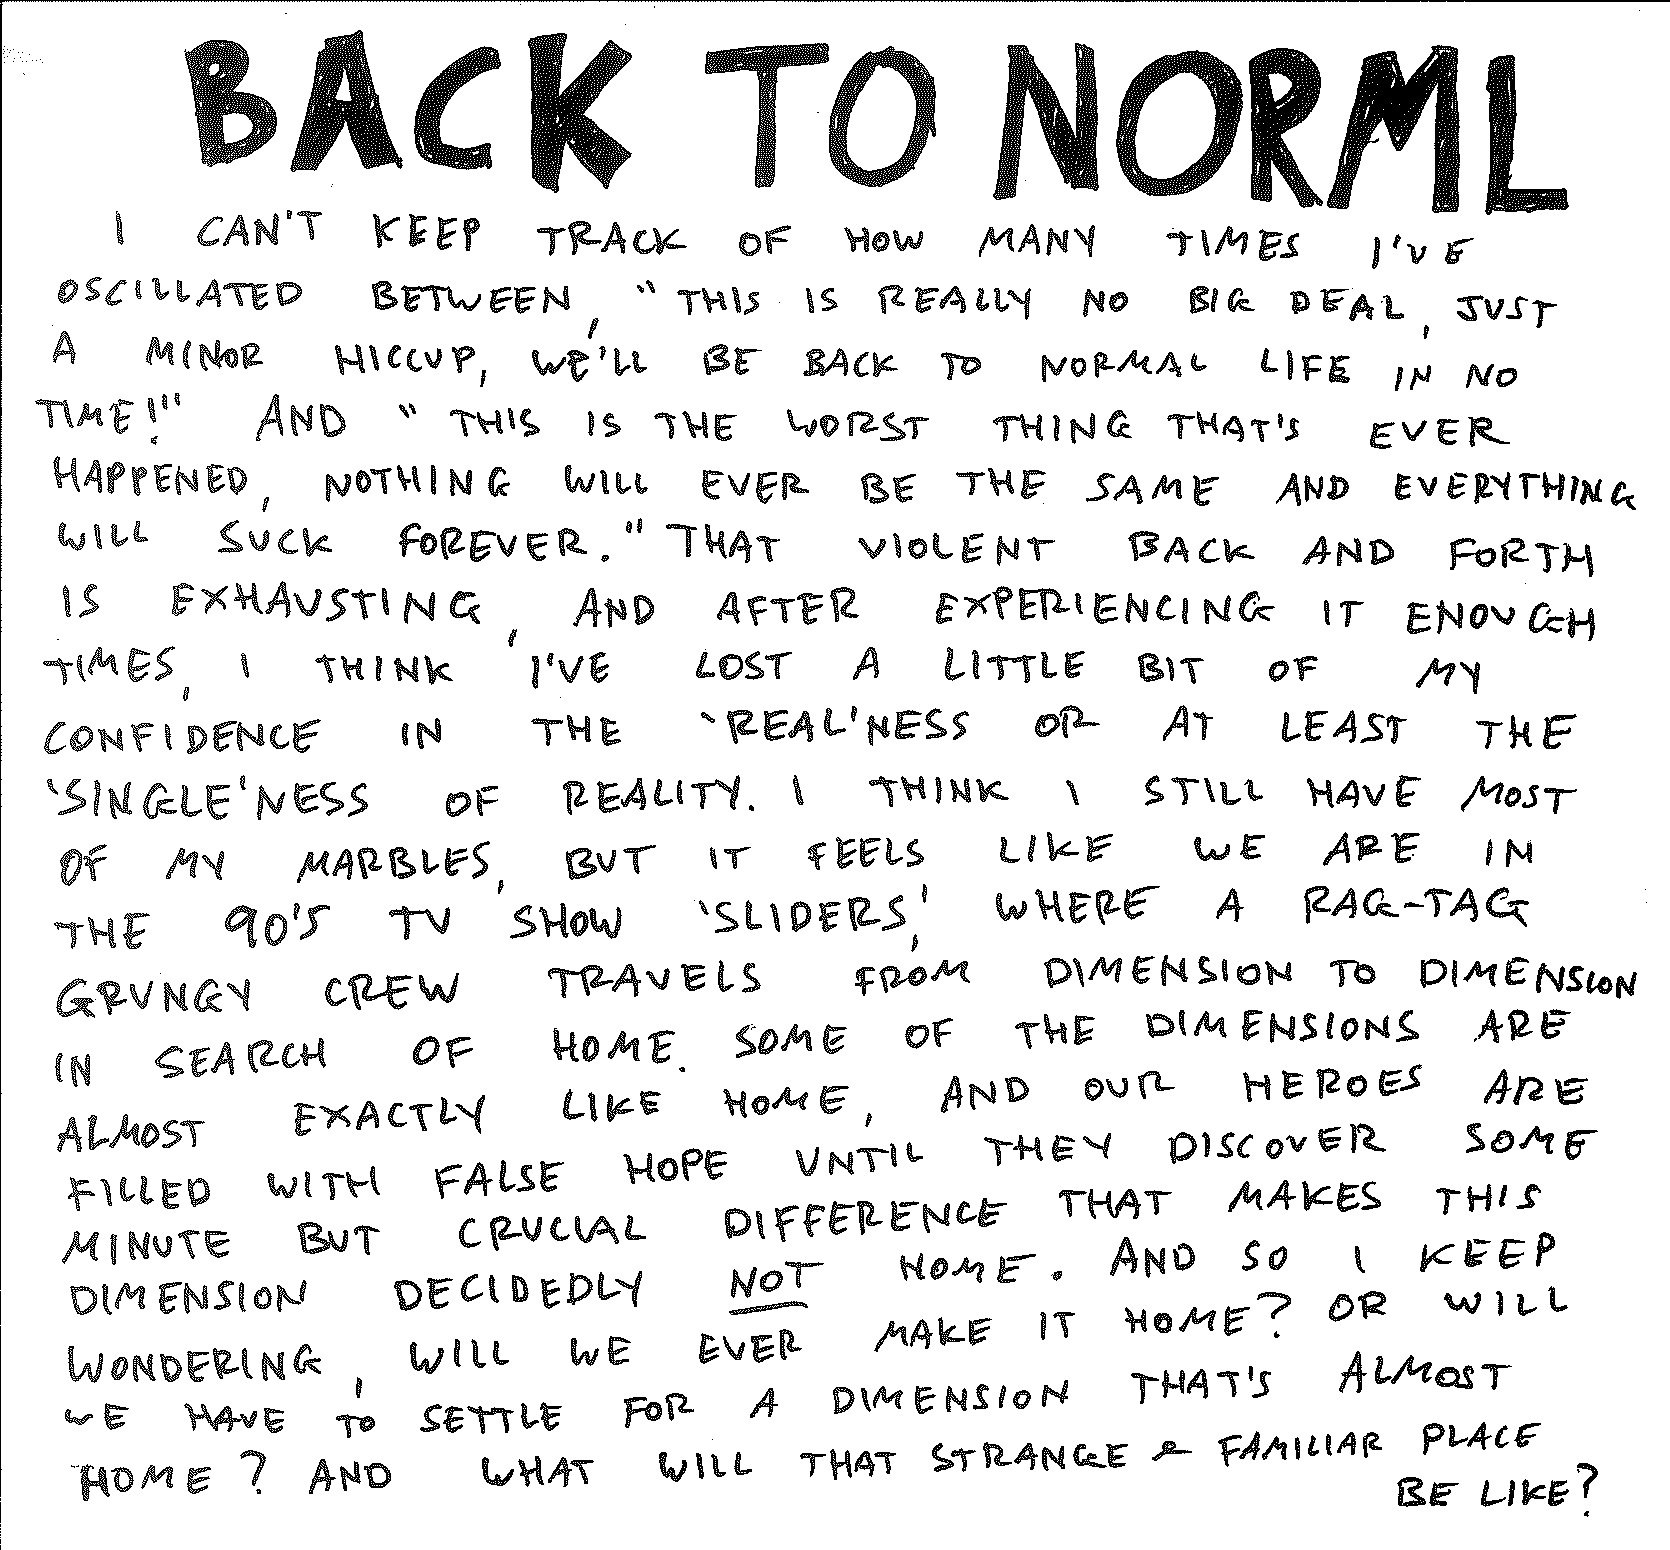 BACK TO NORML
I CAN'T KEEP TRACK OF HOW MANY TIMES I'VE
OSCILLATED BETWEEN, "THIS IS REALLY NO BIG DEAL, JUST
A MINOR HICCUP, WE'LL BE BACK TO NORMAL LIFE IN NO
TIME!" AND "THIS IS THE WORST THING THAT'S EVER
HAPPENED, NOTHING WILL EVER BE THE SAME AND EVERYTHING
WILL SUCK FOREVER." THAT VIOLENT BACK AND FORTH
IS EXHAUSTING, AND AFTER EXPERIENCING IT ENOUGH
TIMES, I THINK I'VE LOST A LITTLE BIT OF MY
CONFIDENCE IN THE 'REAL'NESS OR AT LEAST THE
'SINGLE'NESS OF REALITY. I THINK I STILL HAVE MOST
OF MY MARBLES, BUT IT FEELS LIKE WE ARE IN
THE 90'S TV SHOW 'SLIDERS,' WHERE A RAG-TAG
GRUNGY CREW TRAVELS FROM DIMENSION TO DIMENSION
IN SEARCH OF HOME. SOME OF THE DIMENSIONS ARE
ALMOST EXACTLY LIKE HOME, AND OUR HEROES ARE
FILLED WITH FALSE HOPE UNTIL THEY DISCOVER SOME
MINUTE BUT CRUCIAL DIFFERENCE THAT MAKES THIS
DIMENSION DECIDEDLY NOT HOME. AND SO I KEEP
WONDERING, WILL WE EVER MAKE IT HOME? OR WILL
WE HAVE TO SETTLE FOR A DIMENSION THAT'S ALMOST
HOME? AND WHAT WILL THAT STRANGE & FAMILIAR PLACE
BE LIKE?